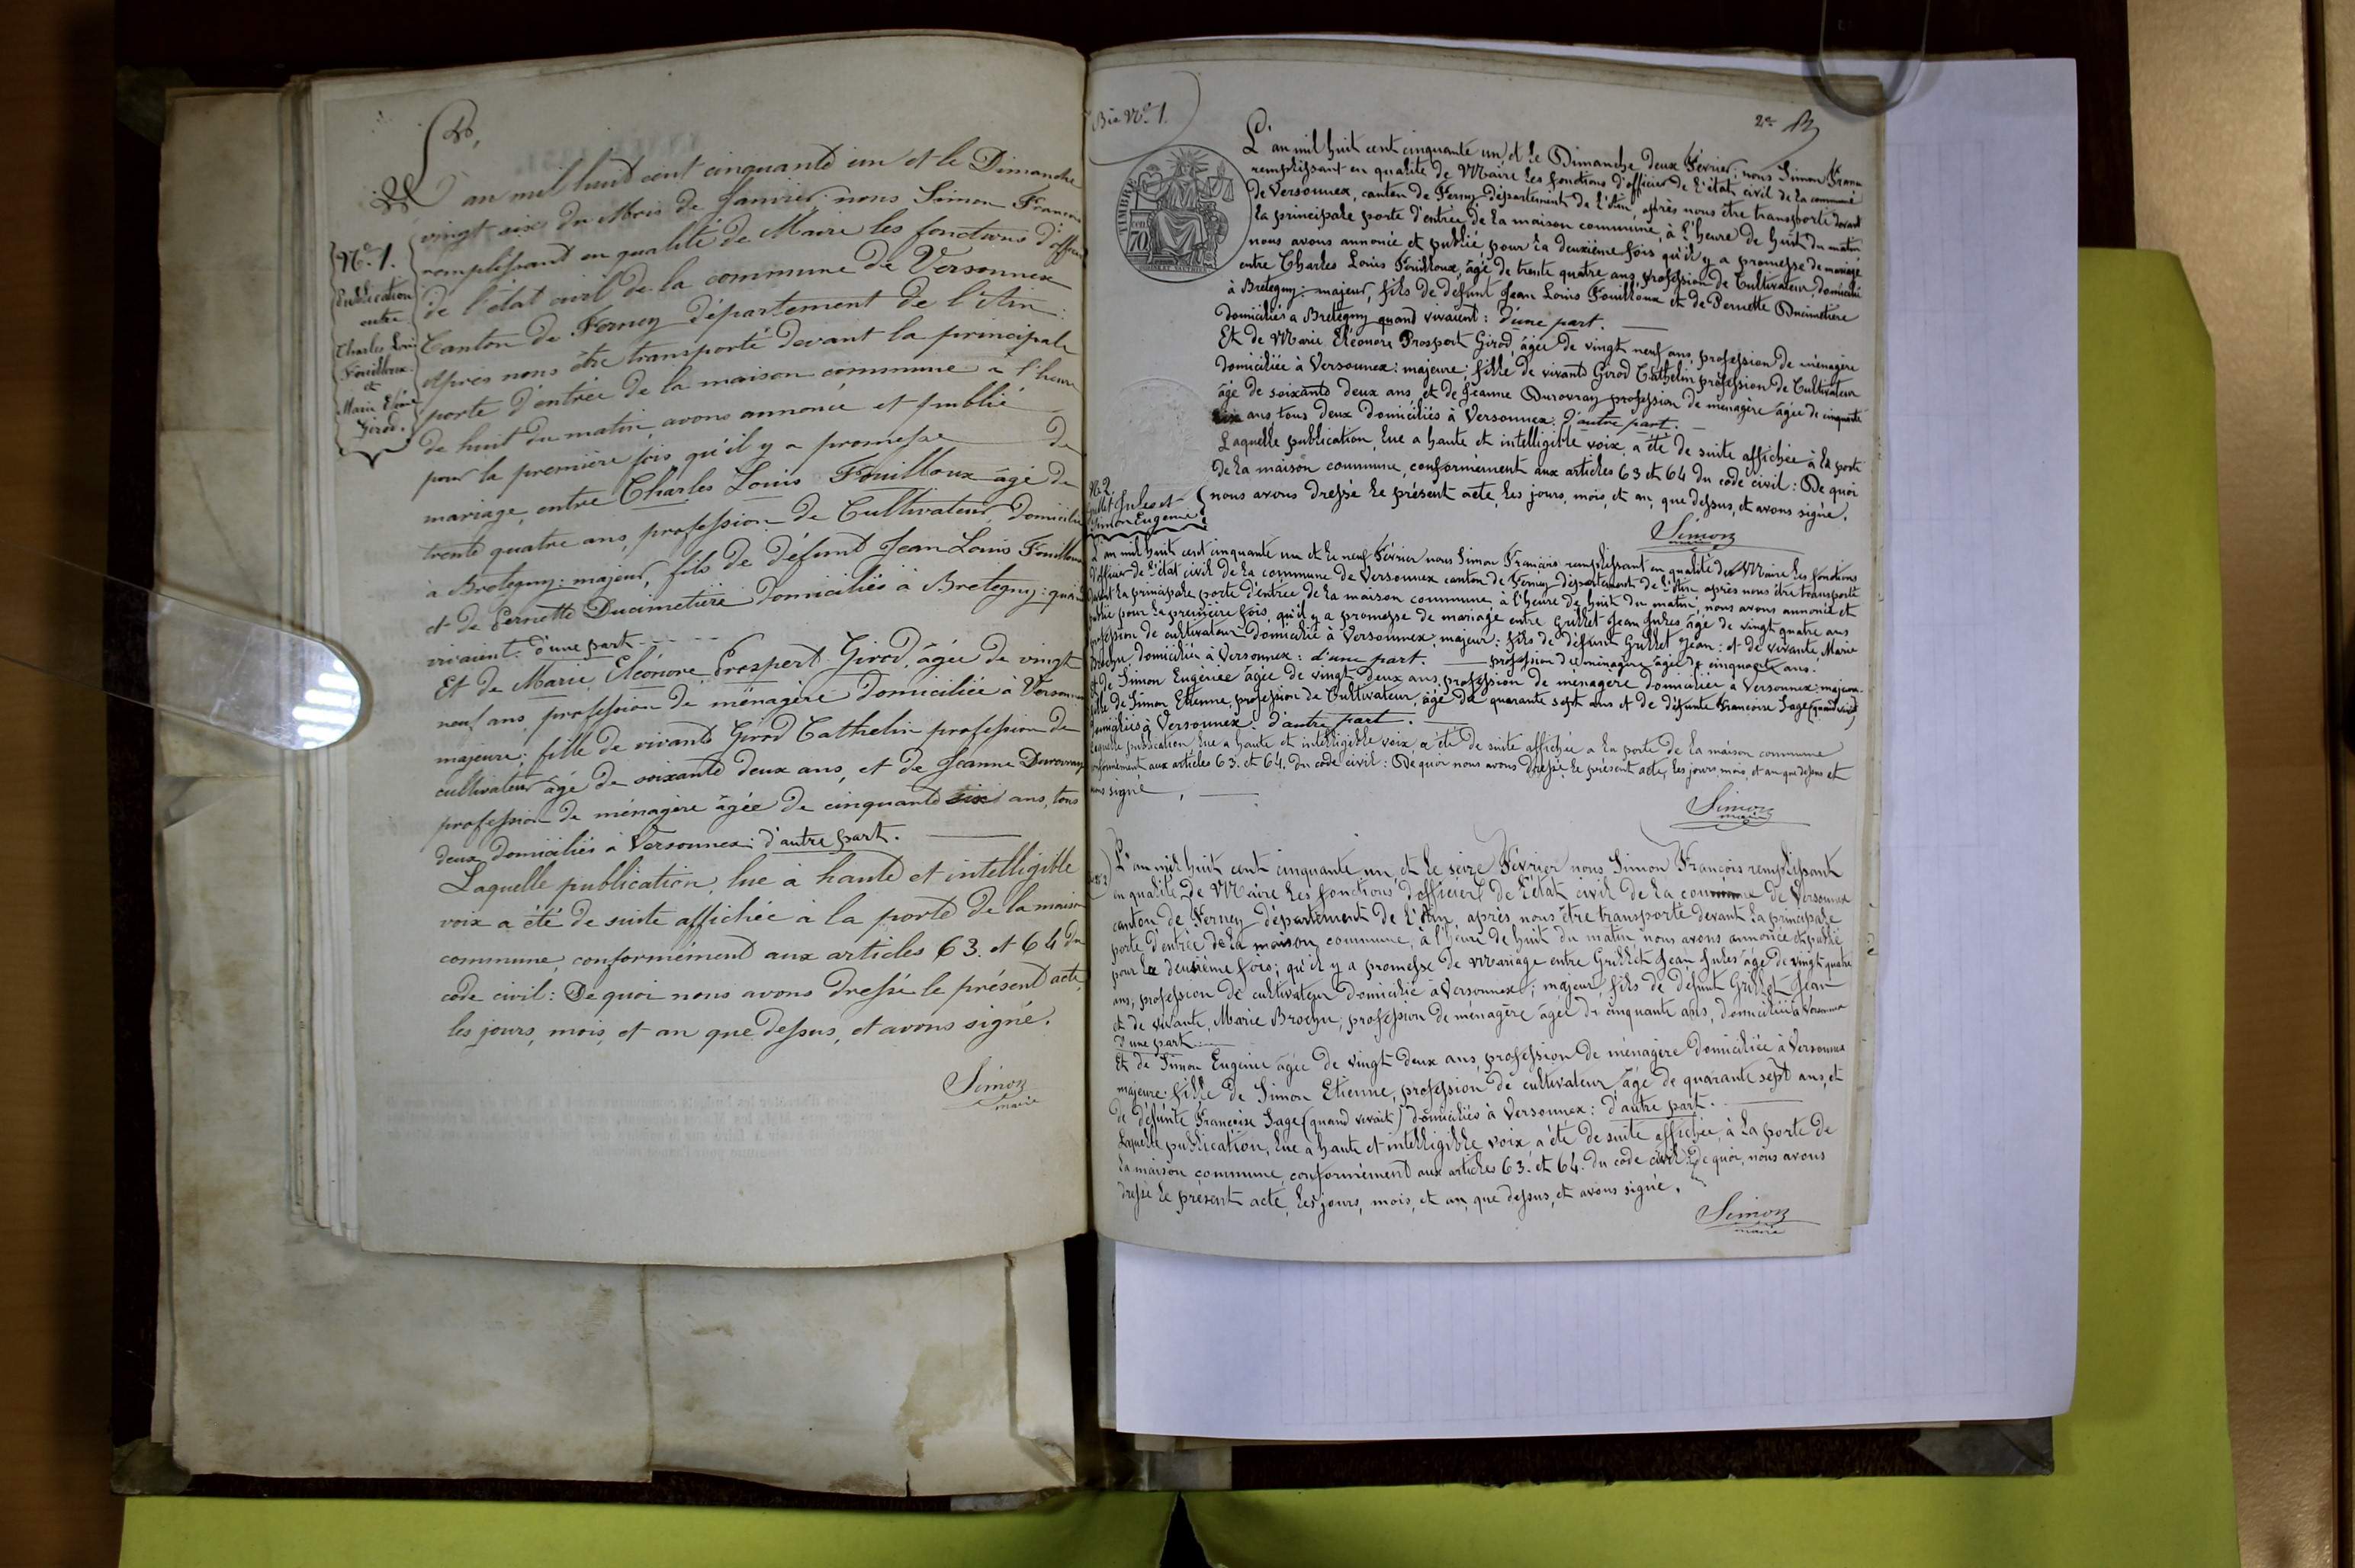 L'an mil huit cent cinquante un et le Dimanche
vingt six du Mois de Janvier: nous Simon François
remplissant en qualité de Maire les fonctions d'officier
de l'état civil de la commune de Versonnex
Canton de Ferney département de l'Ain:
Après nous être transporté devant la principale
porte d'entrée de la maison commune à l'heure
de huit du matin, avons annoncé et publié
pour la première fois qu'il y a promesse de
mariage, entre Charles Louis Fouilloux âgé de
trente quatre ans, profession de Cultivateur, domicilié
à Bretegny: majeur, fils de défunt Jean Louis Fouilloux
et de Pernette Ducimetière domiciliés à Bretegny: quand
vivaient: d'une part.
Et de Marie Eléonore Prospert Girod, âgée de vingt
neuf ans, profession de ménagère domiciliée à Versonnex
majeure: fille de vivants Girod Cathelin profession de
cultivateur âgé de soixante deux ans, et de Jeanne Durovray
profession de ménagère âgée de cinquante six ans, tous
deux domiciliés à Versonnex: d'autre part.
Laquelle publication, lue à haute et intelligible
voix a été de suite affichée à la porte de la maison
commune, conformément aux articles 63. et 64 du
code civil: De quoi nous avons dressé le présent acte,
les jours, mois, et an que dessus, et avons signé.
Simon
maire
No. 1.
Publication
entre
Charles Loui
Fouilloux
et
Marie Eléon
Girod.
Bis No. 1.
2e
TIMBRE
70
L'an mil huit cent cinquante un, et le Dimanche deux Février, nous Simon Franç
remplissant en qualité de Maire les fonctions d'officier de l'état civil de la commune
de Versonnex, canton de Ferney département de l'Ain, après nous être transporté devant
la principale porte d'entrée de la maison commune, à l'heure de huit du matin
nous avons annoncé et publié pour la deuxième fois qu'il y a promesse de mariage
entre Charles Louis Fouilloux, âgé de trente quatre ans, profession de Cultivateur, domicilié
à Bretegny: majeur, fils de défunt Jean Louis Fouilloux et de Pernette Ducimetière
domiciliés à Bretegny quand vivaient: d'une part.
Et de Marie Eléonore Prospert Girod âgée de vingt neuf ans, profession de ménagère
domiciliée à Versonnex: majeure: fille de vivants Girod Cathelin profession de Cultivateur
âgé de soixante deux ans, et de Jeanne Durovray profession de ménagère âgée de cinquante
six ans tous deux domiciliés à Versonnex: d'autre part.
Laquelle publication, lue à haute et intelligible voix, a été de suite affichée à la porte
de la maison commune, conformément aux articles 63 et 64 du code civil: De quoi
nous avons dressé le présent acte, les jours, mois, et an, que dessus, et avons signé.
Simon
No 2.
Grillet Jules et
Simon Eugenie
L'an mil huit cent cinquante un et le neuf Février nous Simon François remplissant en qualité de Maire les fonctions
d'officier de l'état civil de la commune de Versonnex canton de Ferney département de l'Ain après nous être transporté
devant la principale porte d'entrée de la maison commune, à l'heure de huit du matin, nous avons annoncé et
publié pour la première fois, qu'il y a promesse de mariage entre Grillet Jean Jules âgé de vingt quatre ans
profession de cultivateur domicilié à Versonnex, majeur: fils de défunt Grillet Jean: et de vivante Marie
Brochu, domiciliée à Versonnex: d'une part. profession de ménagère âgée de cinquante ans.
et de Simon Eugénie âgée de vingt deux ans, profession de ménagère domiciliée à Versonnex: majeure
fille de Simon Etienne, profession de Cultivateur, âgé de quarante sept ans et de défunte Françoise Sage (quand vivait)
domiciliés à Versonnex: d'autre part.
Laquelle publication lue à haute et intelligible voix, a été de suite affichée à la porte de la maison commune
conformément aux articles 63. et 64. du code civil: De quoi nous avons dressé le présent acte, les jours, mois, et an que dessus et
avons signé.
Simon
maire
L'an mil huit cent cinquante un, et le seize Février nous Simon François remplissant
en qualité de Maire les fonctions d'officier de l'état civil de la commune de Versonnex
canton de Ferney département de l'Ain, après nous être transporté devant la principale
porte d'entrée de la maison commune, à l'heure de huit du matin, nous avons annoncé et publié
pour la deuxième fois; qu'il y a promesse de mariage entre Grillet Jean Jules âgé de vingt quatre
ans, profession de cultivateur domicilié à Versonnex; majeur, fils de défunt Grillet Jean
et de vivante, Marie Brochu, profession de ménagère âgée de cinquante ans, domiciliée à Versonnex
d'une part.
Et de Simon Eugénie âgée de vingt deux ans, profession de ménagère domiciliée à Versonnex
majeure: fille de Simon Etienne, profession de cultivateur, âgé de quarante sept ans, et
de défunte Françoise Sage (quand vivait) domiciliés à Versonnex: d'autre part.
Laquelle publication, lue à haute et intelligible voix, a été de suite affichée, à la porte de
la maison commune, conformément aux articles 63. et 64. du code civil: De quoi, nous avons
dressé le présent acte, les jours, mois, et an, que dessus, et avons signé.
Simon
maire